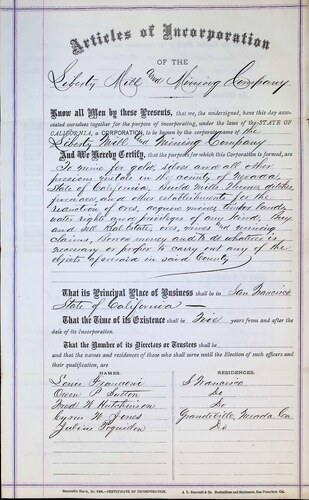 Articles of Incorporation
OF THE
Liberty Mill and Mining Company
Know all Men by these Presents, that we, the undersigned, have this day
associated ourselves together for the purpose of incorporating, under the laws of the STATE OF
CALIFORNIA, a CORPORATION, to be known by the corporate name of the
Liberty Mill and Mining Company
And We Hereby Certify, that the purposes for which this Corporation is formed, are
To mine for gold, silver and all other
precious metals in the county of Nevada,
State of California, Build Mills Flumes ditches
furnaces, and other establishments for the
reduction of ores, acquire mines timber lands,
water rights and privileges of any kind, buy
and sell Real Estate, ores, mines and mining
claims, borrow money and to do whatever is
necessary or proper to carry out any of the
objects aforesaid in said County
That its Principal Place of Business shall be in San Francisco
State of California
That the Time of its Existence shall be years from and after the
date of its Incorporation.
That the Number of its Directors or Trustees shall be
and that the names and residences of those who shall serve until the Election of such officers and
their qualification, are
NAMES. RESIDENCES.
Louis S Francisco
Owen P Sutton Do
Fred W Hutchinson Do
W Jones Graniteville, Nevada Co.
Julius Do